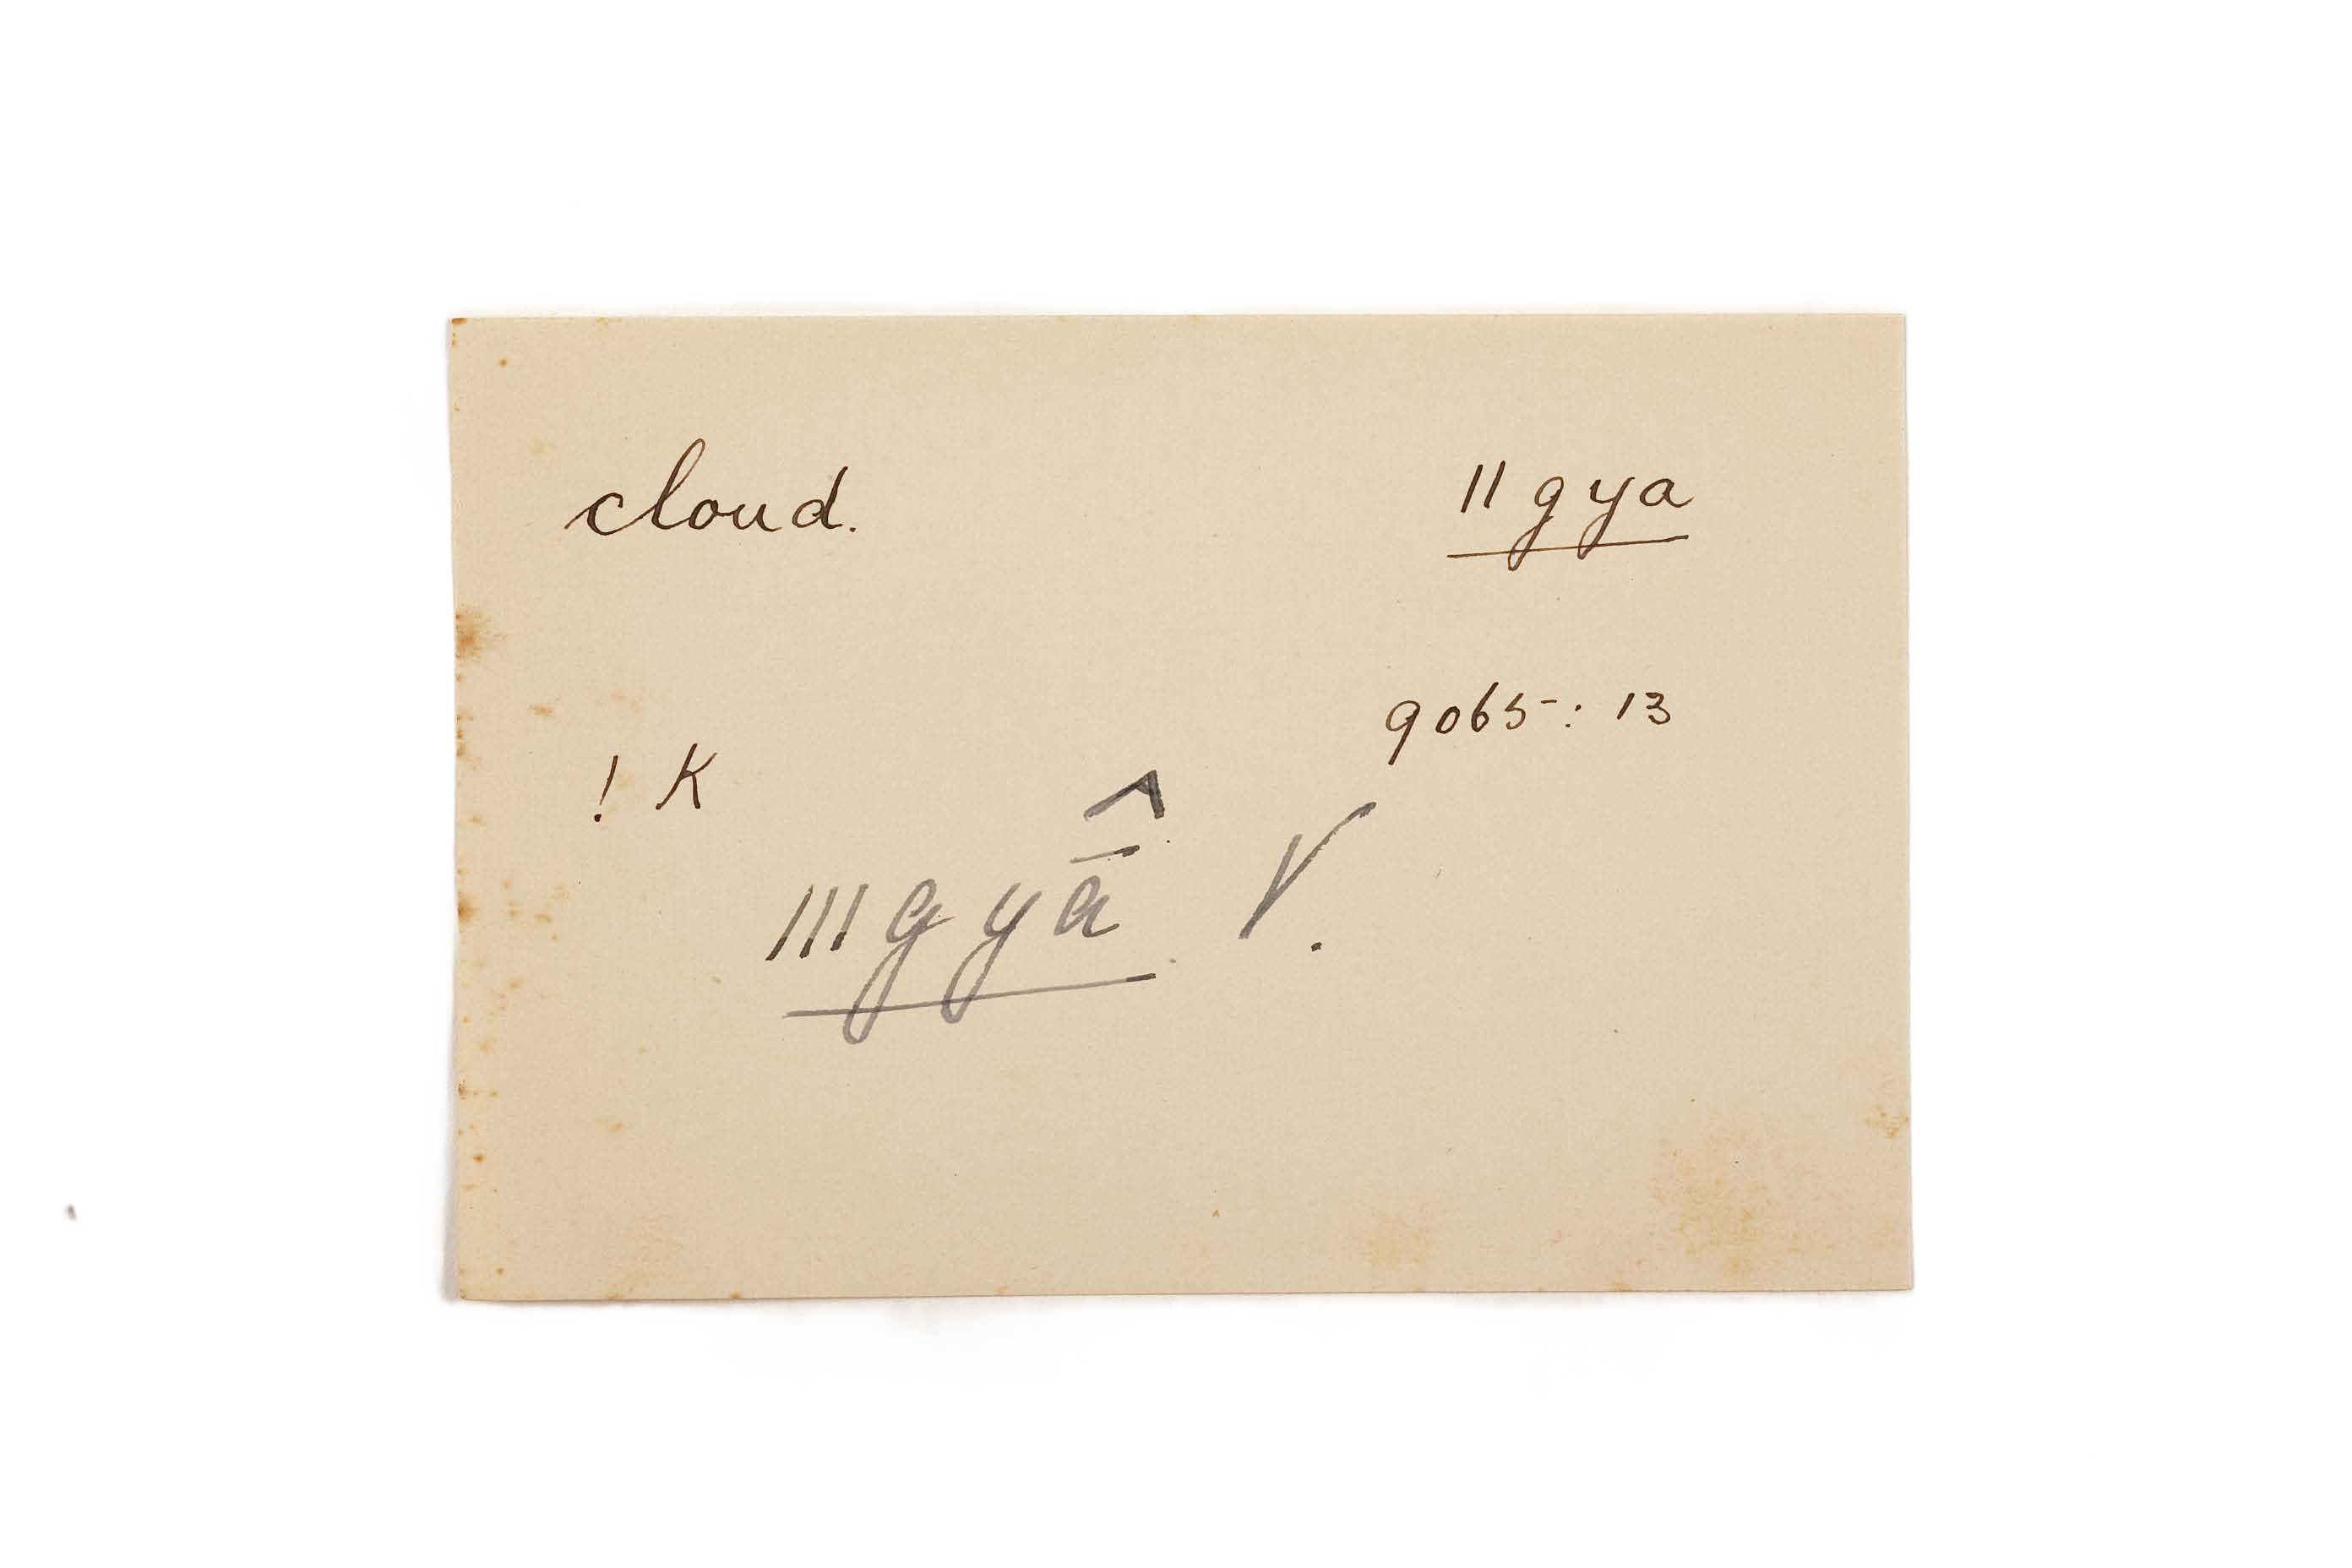 cloud. ||gya
9065: 13
! K
|||gyā̂ V.